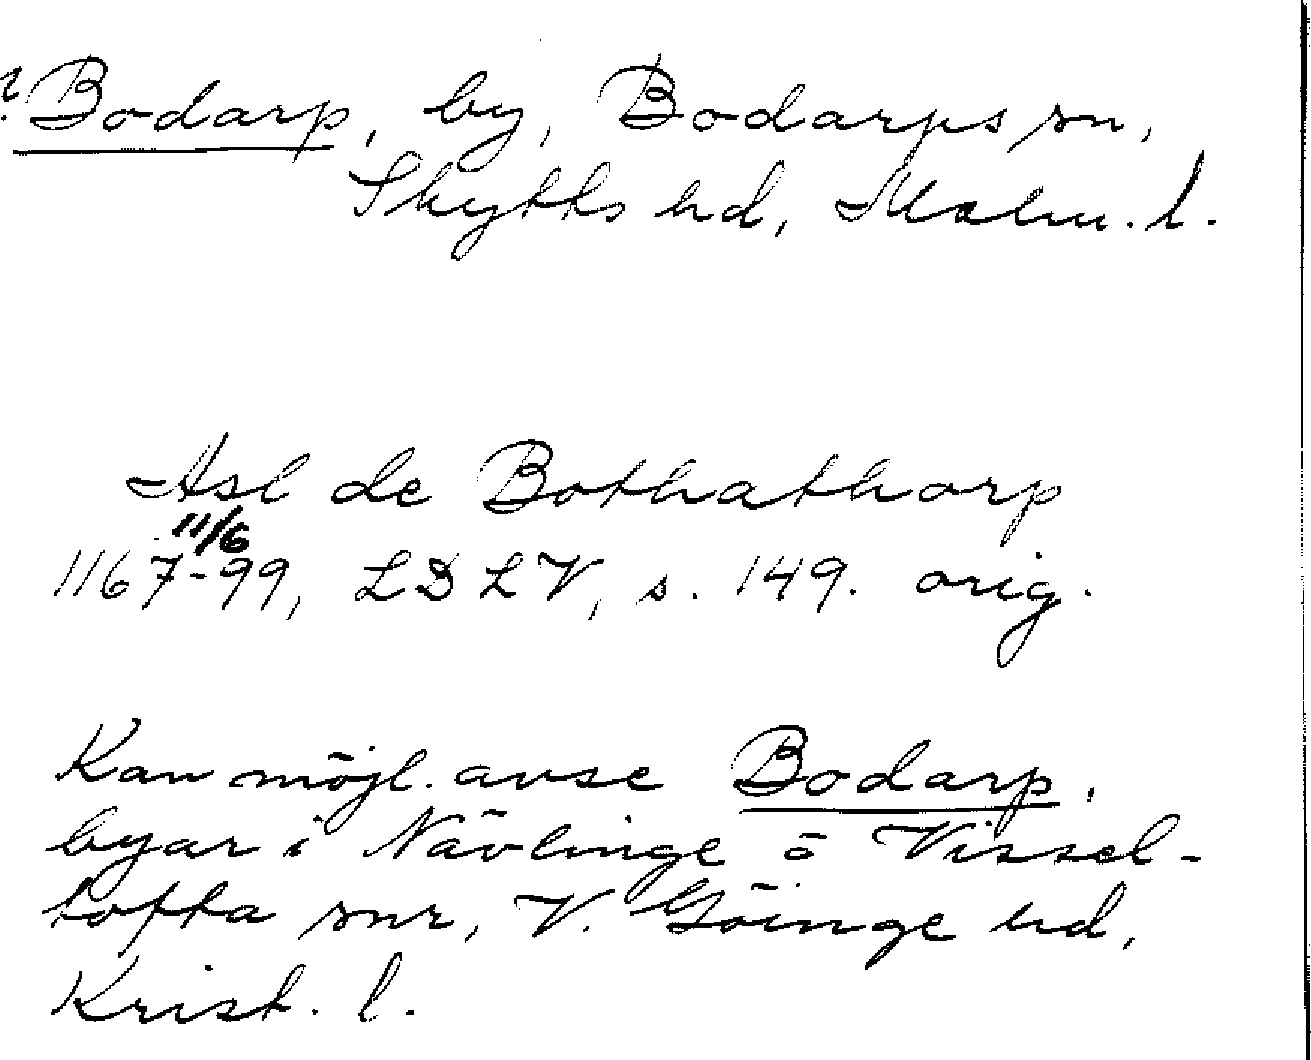 ? Bodarp, by, Bodarps sn,
Skytts hd, Malm. l.
Asl de Bothathorp
11/6
1167-99, LDLV, s. 149. orig.
Kan möjl. avse Bodarp,
byar i Nävlinge o Vissel-
tofta snr, V. Göinge hd,
Krist. l.